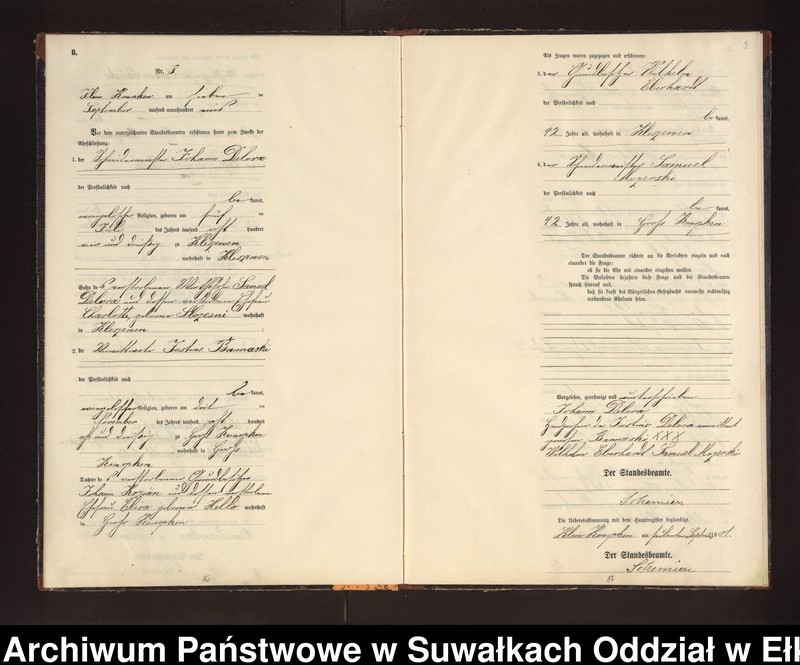 B.
Nr. 8.
Klein Konopken am sieben ten
September tausend neunhundert eins
Vor dem unterzeichneten Standesbeamten erschienen heute zum Zwecke der
Eheschließung:
1. der Schneidermeister Johann Delora
der Persönlichkeit nach
be kannt,
evangelischer Religion, geboren am
Juli des Jahres tausend acht hundert
und dreißig zu Klezewen
wohnhaft in Klezewen
Sohn des verstorbenen Samuel
Delora und dessen verstorbenen Ehefrau
Charlotte, geborenen wohnhaft
in Klezewen ;
2. die Justine Bannaski
der Persönlichkeit nach
be kannt,
evangelischer Religion, geboren am
November des Jahres tausend acht hundert
acht und dreißig zu Groß Konopken
wohnhaft in Groß
Konopken
Tochter des verstorbenen Grundbesitzer
Johann und dessen verstorbenen
Ehefrau Elisa geborene wohnhaft
in Groß Konopken
Als Zeugen waren zugezogen und erschienen:
3. der Grundbesitzer Wilhelm
Eberhardt
der Persönlichkeit nach
be kannt,
42 Jahre alt, wohnhaft in Klezewen
4. der Schneidermeister Samuel
der Persönlichkeit nach
be kannt,
42 Jahre alt, wohnhaft in Groß Konopken
Der Standesbeamte richtete an die Verlobten einzeln und nach
einander die Frage:
ob sie die Ehe mit einander eingehen wollen.
Die Verlobten bejahten diese Frage und der Standesbeamte
sprach hierauf aus,
daß sie kraft des Bürgerlichen Gesetzbuchs nunmehr rechtmäßig
verbundene Eheleute seien.
Vorgelesen, genehmigt und unterschrieben
Johann Delora
Handzeichen der Justine Delora
geborene Bannaski XXX
Wilhelm Eberhardt Samuel
Der Standesbeamte.
Schemien
Die Uebereinstimmung mit dem Hauptregister beglaubigt.
Klein Konopken am siebenten September 1901.
Der Standesbeamte.
Schemien
Archiwum Państwowe w Suwałkach Oddział w Ełk